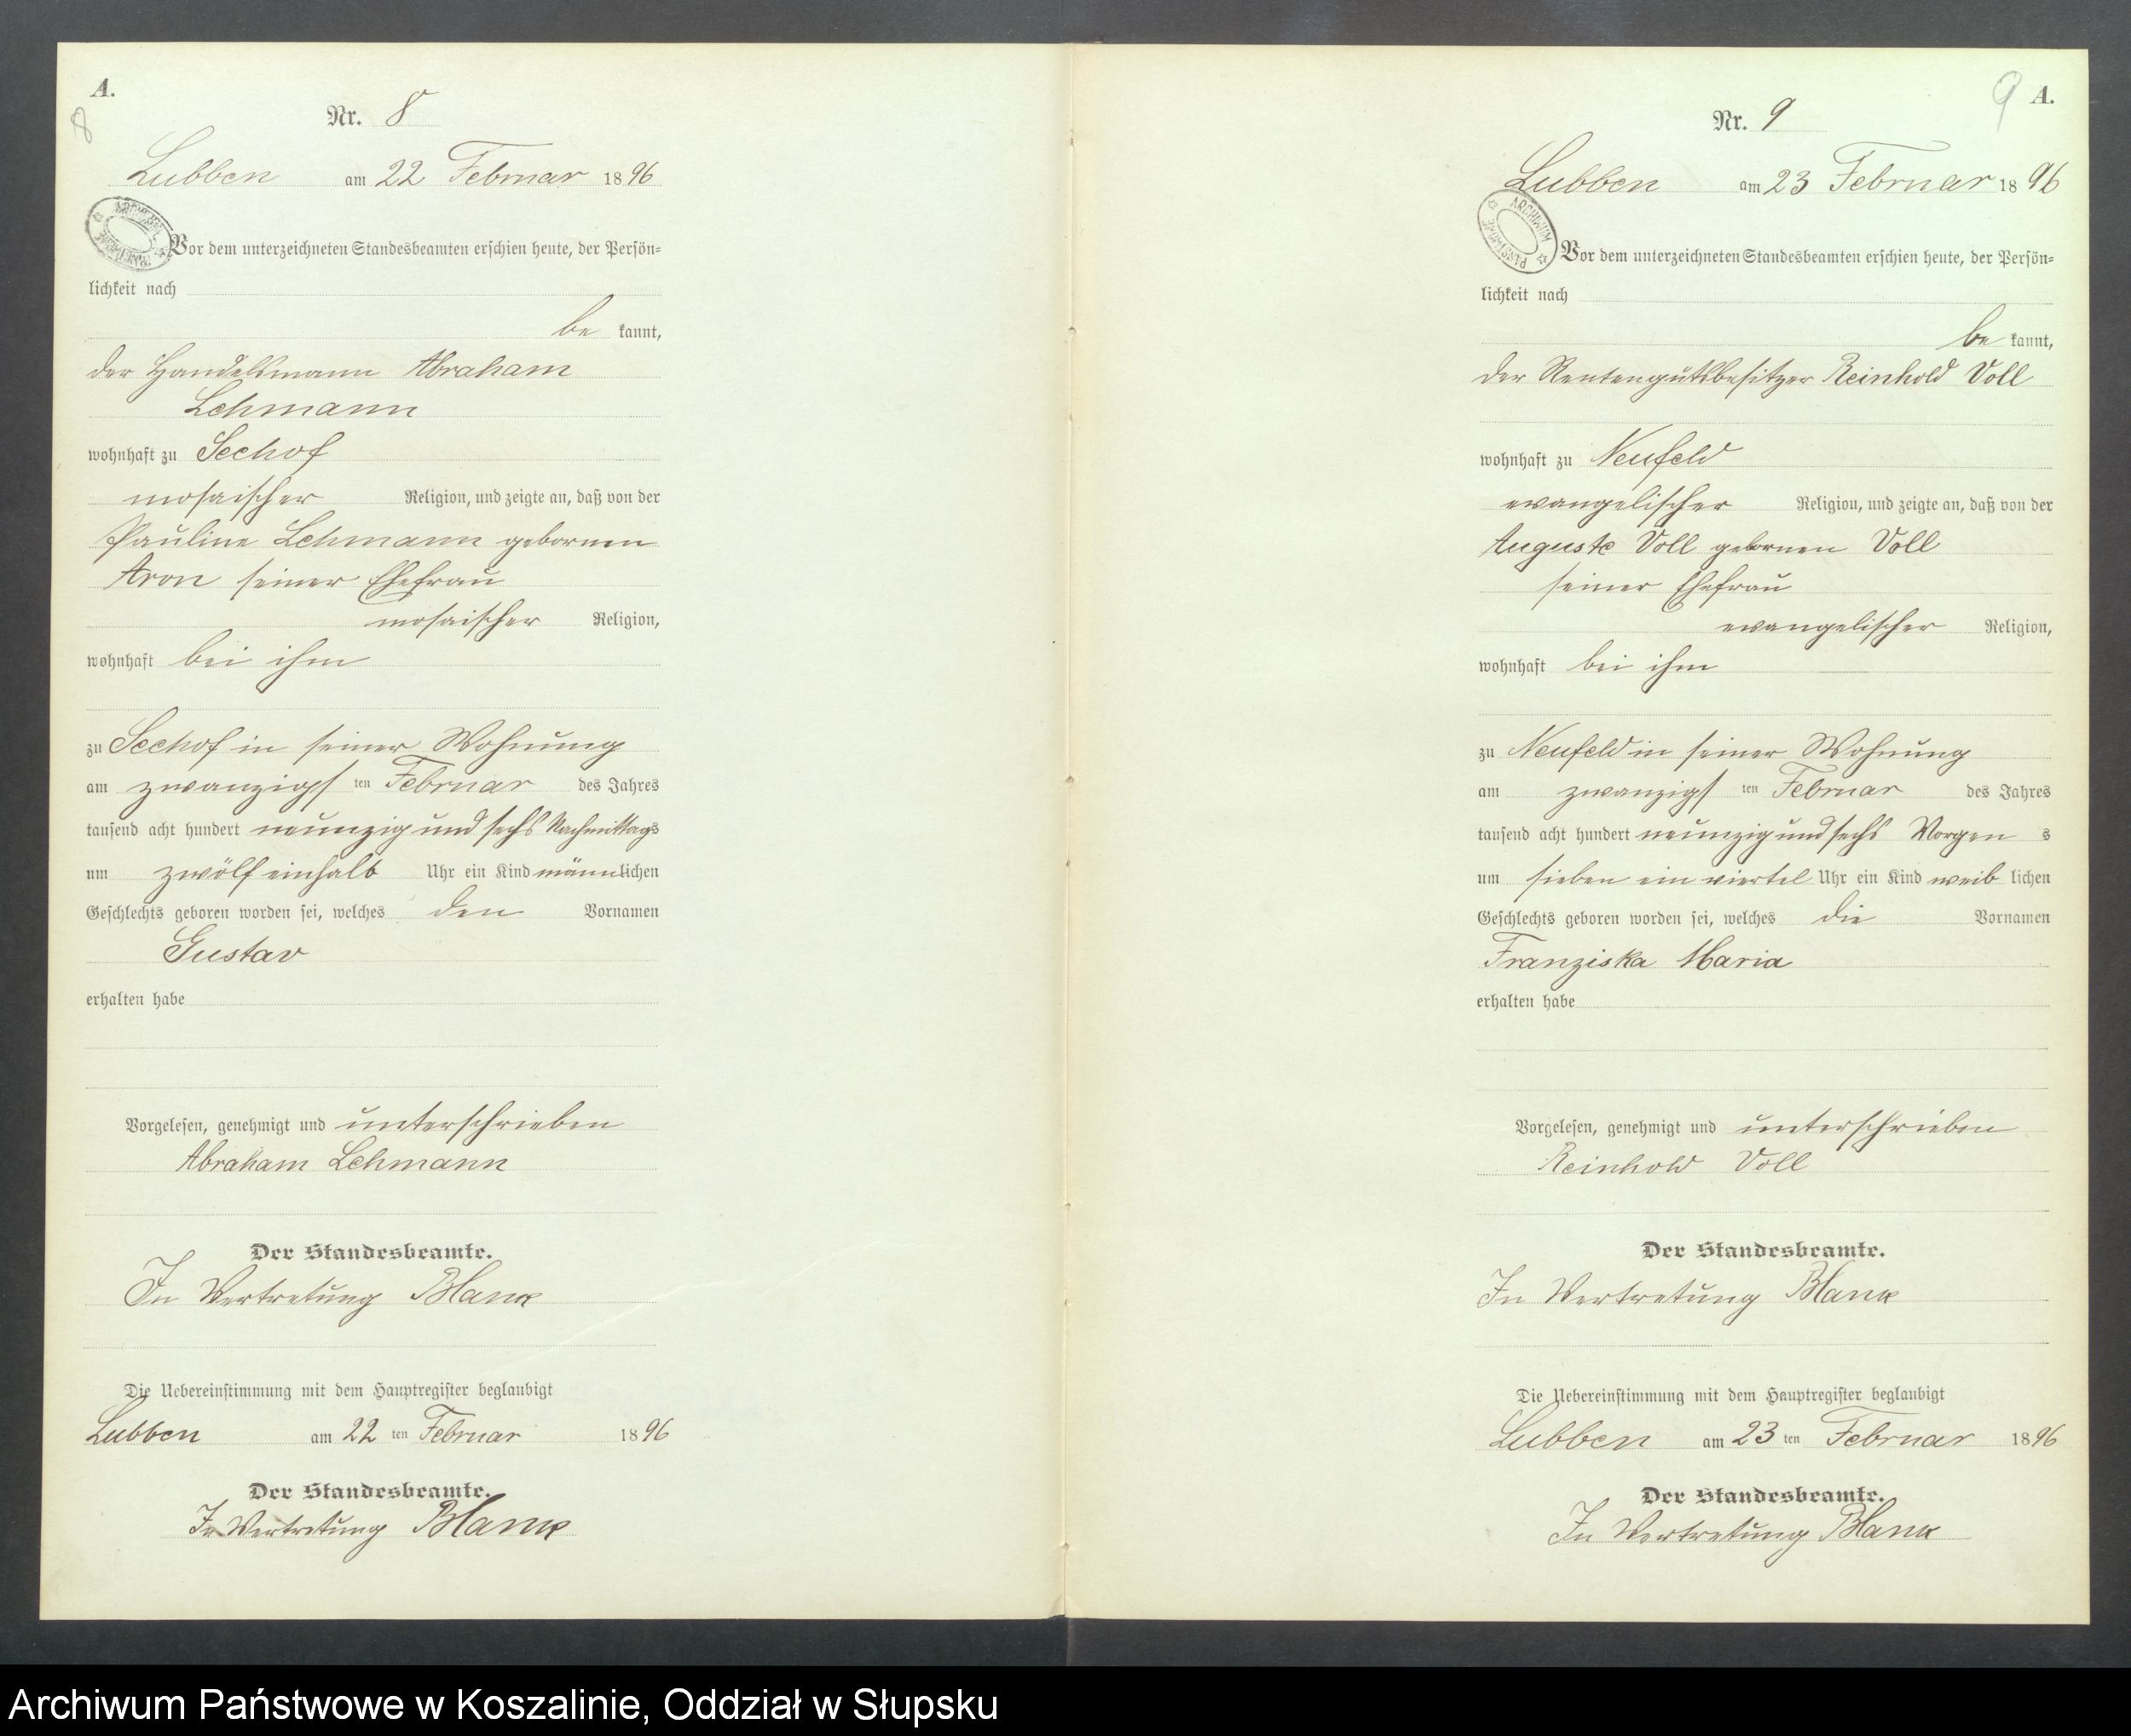 A.
8
Nr. 8
Lubben am 22 Februar 1896
ARCHIWUM PAŃSTWOWE
Vor dem unterzeichneten Standesbeamten erschien heute, der Persön=
lichkeit nach
be kannt,
der Handelsmann Abraham
Lehmann
wohnhaft zu Seehof
mosaischer Religion, und zeigte an, daß von der
Pauline Lehmann gebornen
Aron seiner Ehefrau
mosaischer Religion,
wohnhaft bei ihm
zu Seehof in seiner Wohnung
am zwanzigsten Februar des Jahres
tausend acht hundert neunzig und sechs Nachmittags
um zwölf einhalb Uhr ein Kind männlichen
Geschlechts geboren worden sei, welches den Vornamen
Gustav
erhalten habe
Vorgelesen, genehmigt und unterschrieben
Abraham Lehmann
Der Standesbeamte.
In Vertretung
Die Uebereinstimmung mit dem Hauptregister beglaubigt
Lubben am 22 ten Februar 1896
Der Standesbeamte.
In Vertretung
9 A.
Nr. 9
Lubben am 23 Februar 1896
ARCHIWUM PAŃSTWOWE
Vor dem unterzeichneten Standesbeamten erschien heute, der Persön=
lichkeit nach
be kannt,
der Rentengutsbesitzer Reinhold Voll
wohnhaft zu Neufeld
evangelischer Religion, und zeigte an, daß von der
Auguste Voll gebornen Voll
seiner Ehefrau
evangelischer Religion,
wohnhaft bei ihm
zu Neufeld in seiner Wohnung
am zwanzigsten Februar des Jahres
tausend acht hundert neunzig und sechs Morgens
um sieben ein viertel Uhr ein Kind weiblichen
Geschlechts geboren worden sei, welches die Vornamen
Franziska Maria
erhalten habe
Vorgelesen, genehmigt und unterschrieben
Reinhold Voll
Der Standesbeamte.
In Vertretung
Die Uebereinstimmung mit dem Hauptregister beglaubigt
Lubben am 23 ten Februar 1896
Der Standesbeamte.
In Vertretung
Archiwum Państwowe w Koszalinie, Oddział w Słupsku